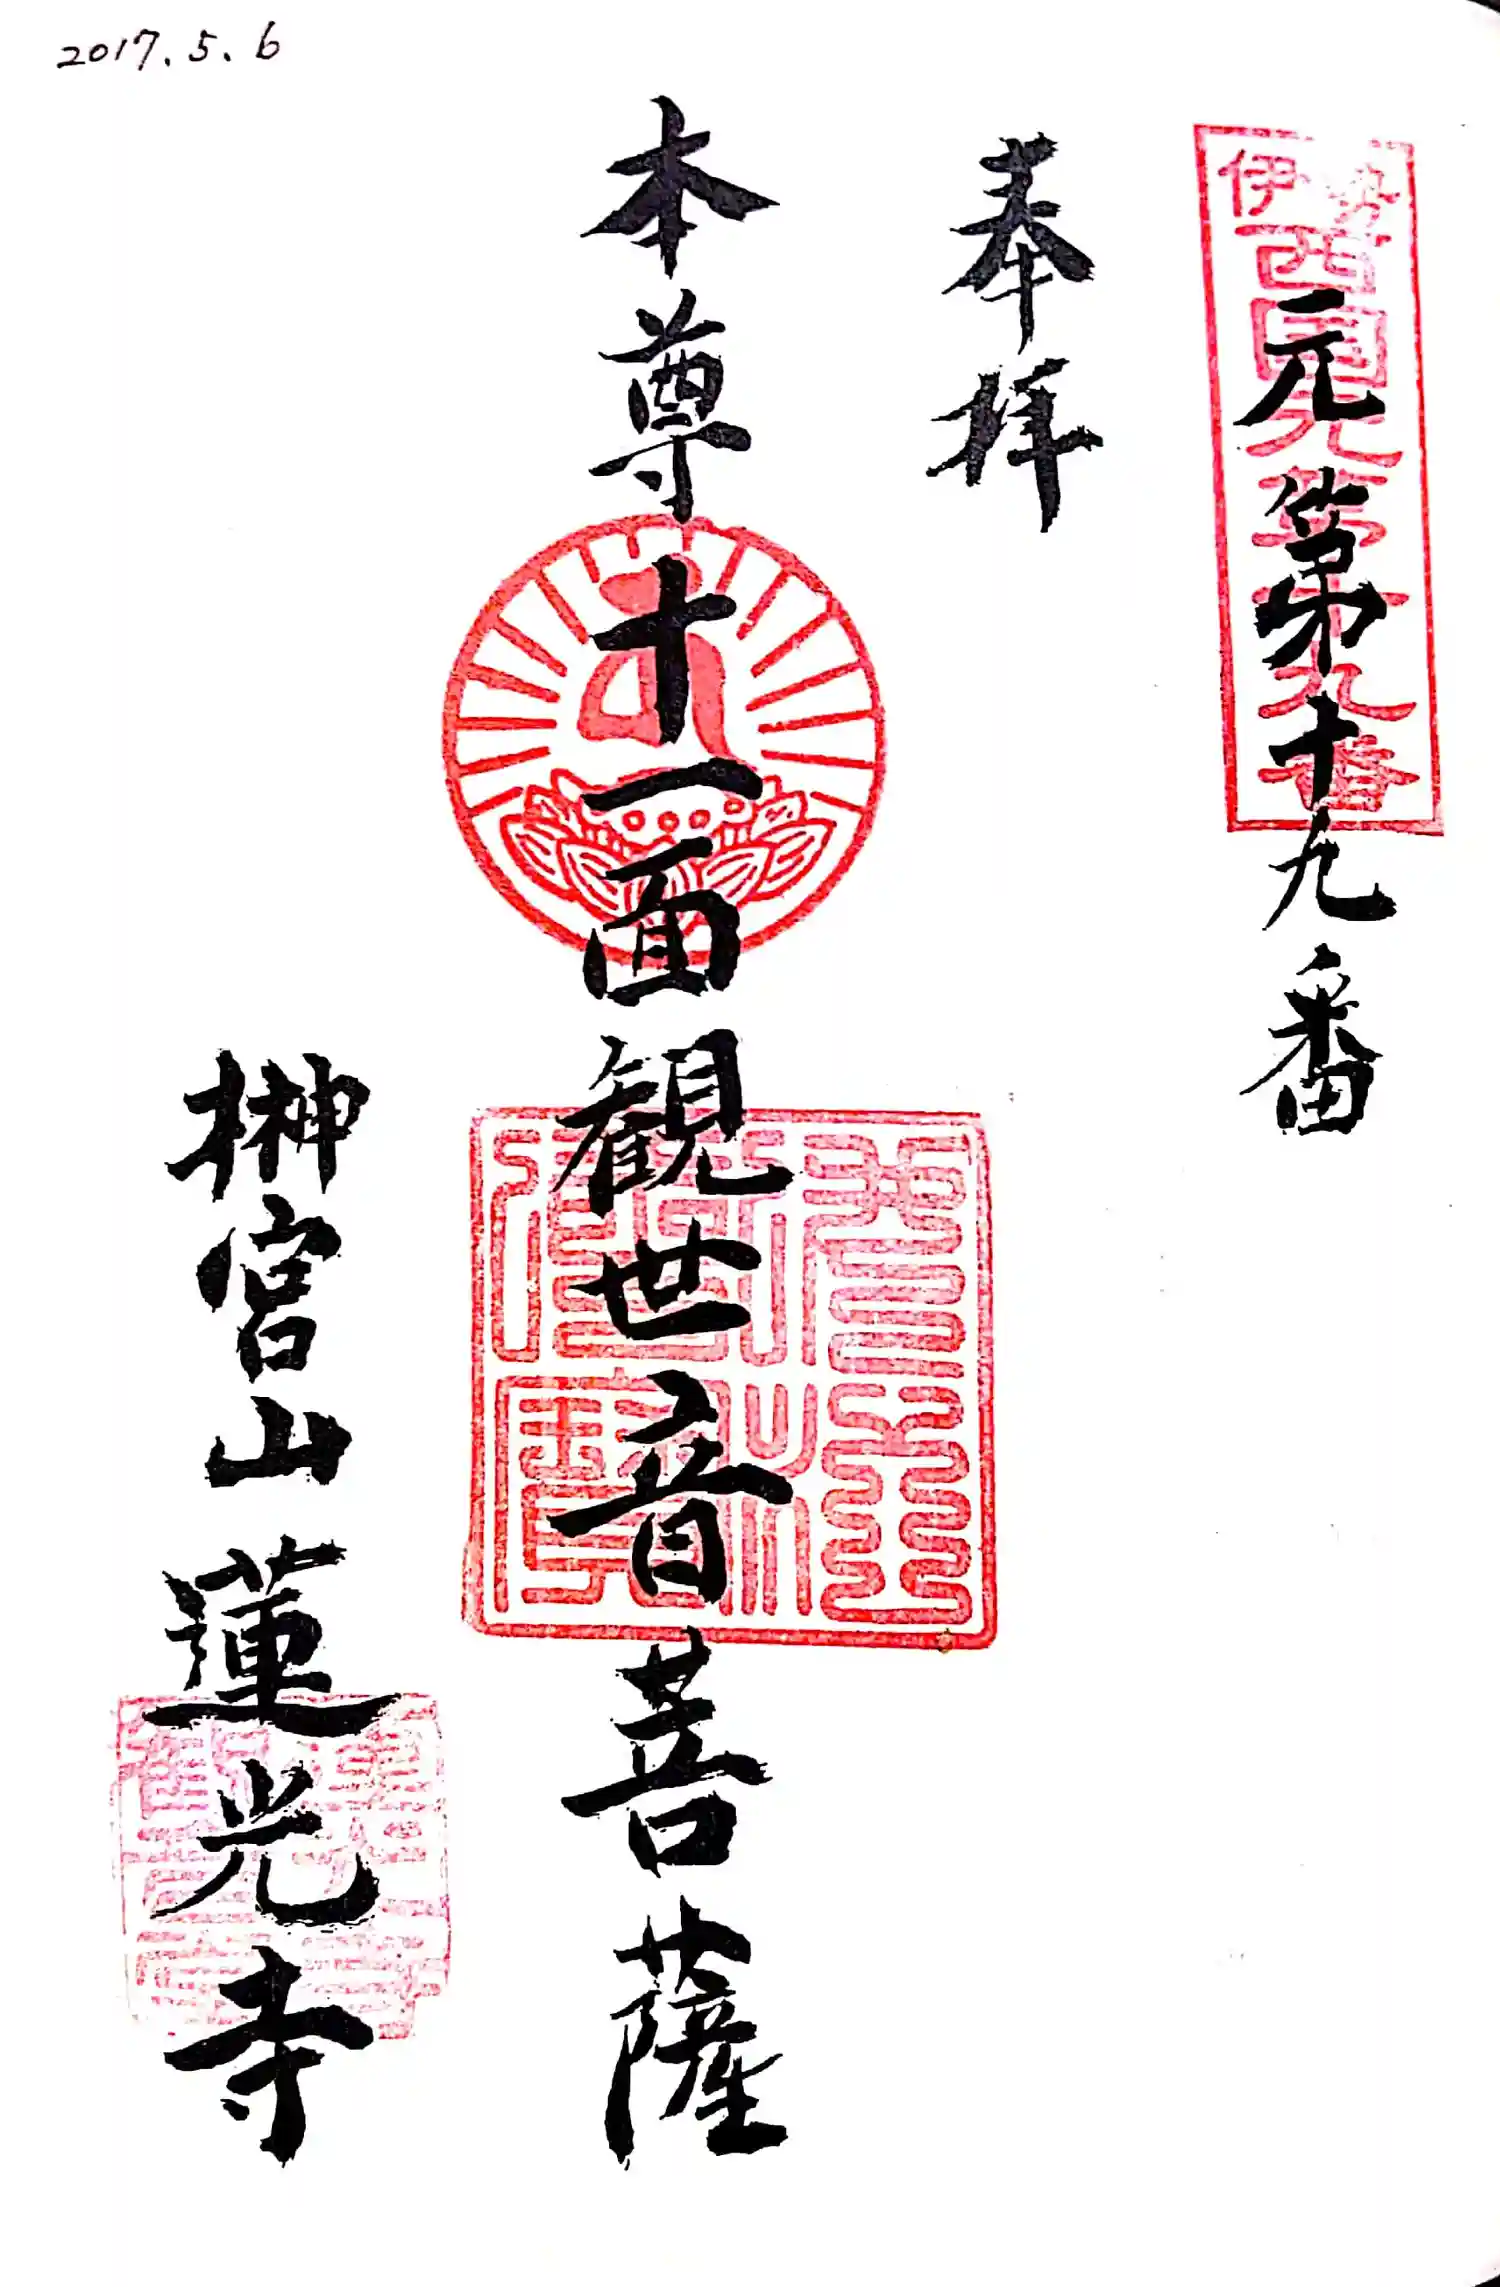 2017.5.6
伊勢西国元第十九番
元第十九番
奉拝
本尊十一面観世音菩薩
榊宮山蓮光寺